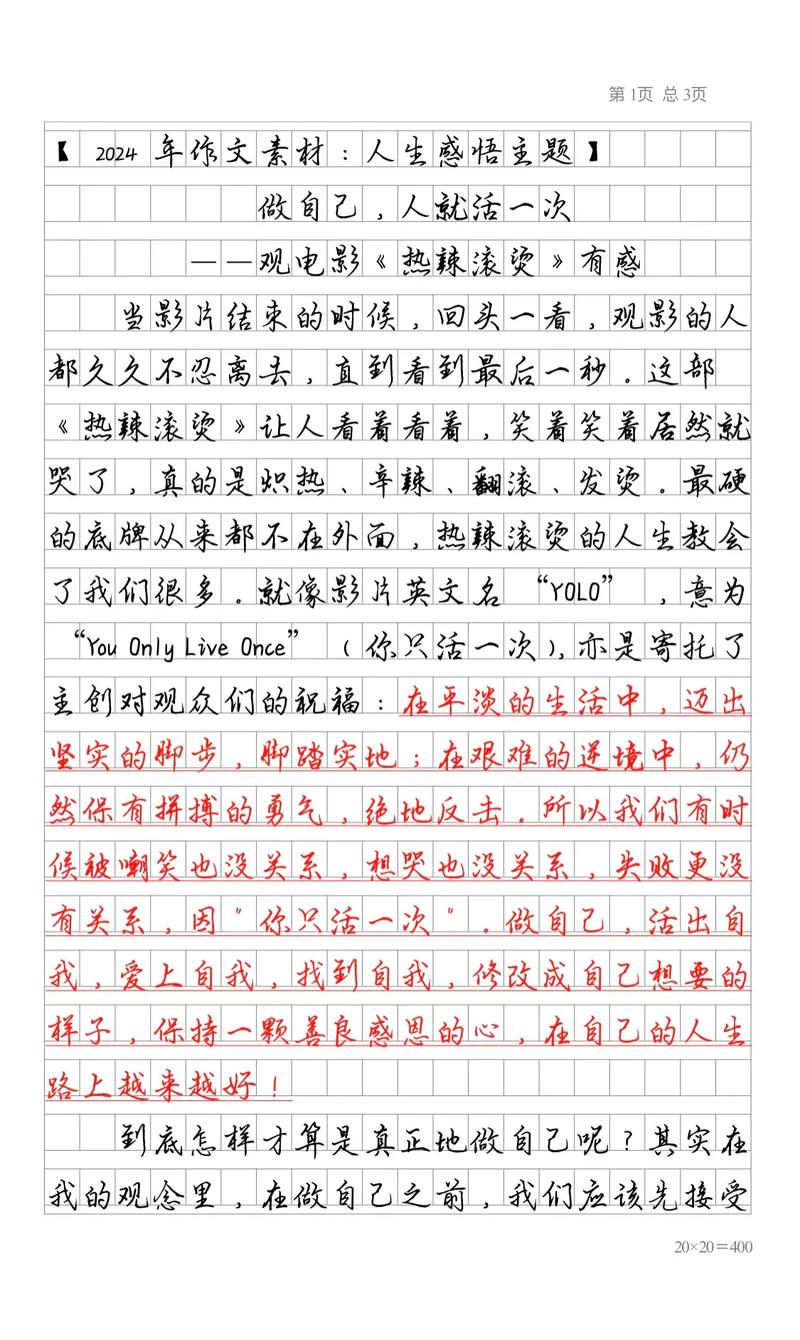 第1页 总3页
【 2024 年作文素材：人生感悟主题】
做自己，人就活一次
——观电影《热辣滚烫》有感
当影片结束的时候，回头一看，观影的人
都久久不忍离去，直到看到最后一秒。这部
《热辣滚烫》让人看着看着，笑着笑着居然就
哭了，真的是炽热、辛辣、翻滚、发烫。最硬
的底牌从来都不在外面，热辣滚烫的人生教会
了我们很多。就像影片英文名 “YOLO” ，意为
“You Only Live Once” （你只活一次），亦是寄托了
主创对观众们的祝福：在平淡的生活中，迈出
坚实的脚步，脚踏实地；在艰难的逆境中，仍
然保有拼搏的勇气，绝地反击。所以我们有时
候被嘲笑也没关系，想哭也没关系，失败更没
有关系，因"你只活一次"。做自己，活出自
我，爱上自我，找到自我，修改成自己想要的
样子，保持一颗善良感恩的心，在自己的人生
路上越来越好！
到底怎样才算是真正地做自己呢？其实在
我的观念里，在做自己之前，我们应该先接受
20×20＝400